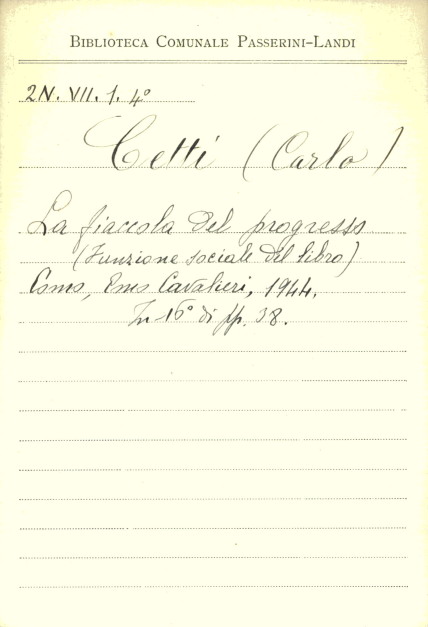 BIBLIOTECA COMUNALE PASSERINI-LANDI
2N. VII. 1. 4°
Cetti (Carlo)
La fiaccola del progresso
(Funzione sociale del libro)
Como, Ems Cavalieri, 1944.
In 16° di pp. 38.